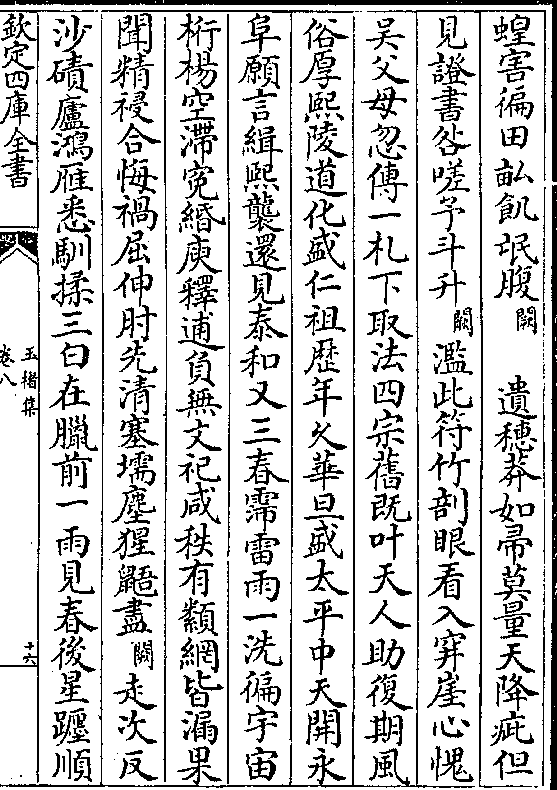 蝗害徧田畝飢氓腹闕 遺穗莽如帚莫量天降疵但
見證書咎嗟予斗升闕 濫此符竹剖眼看入穽崖心愧
吴父母忽傳一札下取法四宗舊既叶天人助復期風
俗厚熙陵道化盛仁祖歴年久華旦盛太平中天開永
阜願言緝熙襲還見泰和又三春霈雷雨一洗徧宇宙
桁楊空滯寃緡庾釋逋負無文祀咸秩有纇網皆漏果
聞精祲合悔禍屈伸肘先清塞壖塵猩鼯盡闕 走次反
沙磧廬鴻雁悉馴揉三白在臘前一雨見春後星躔順
欽定四庫全書
玉楮集
卷八
十六